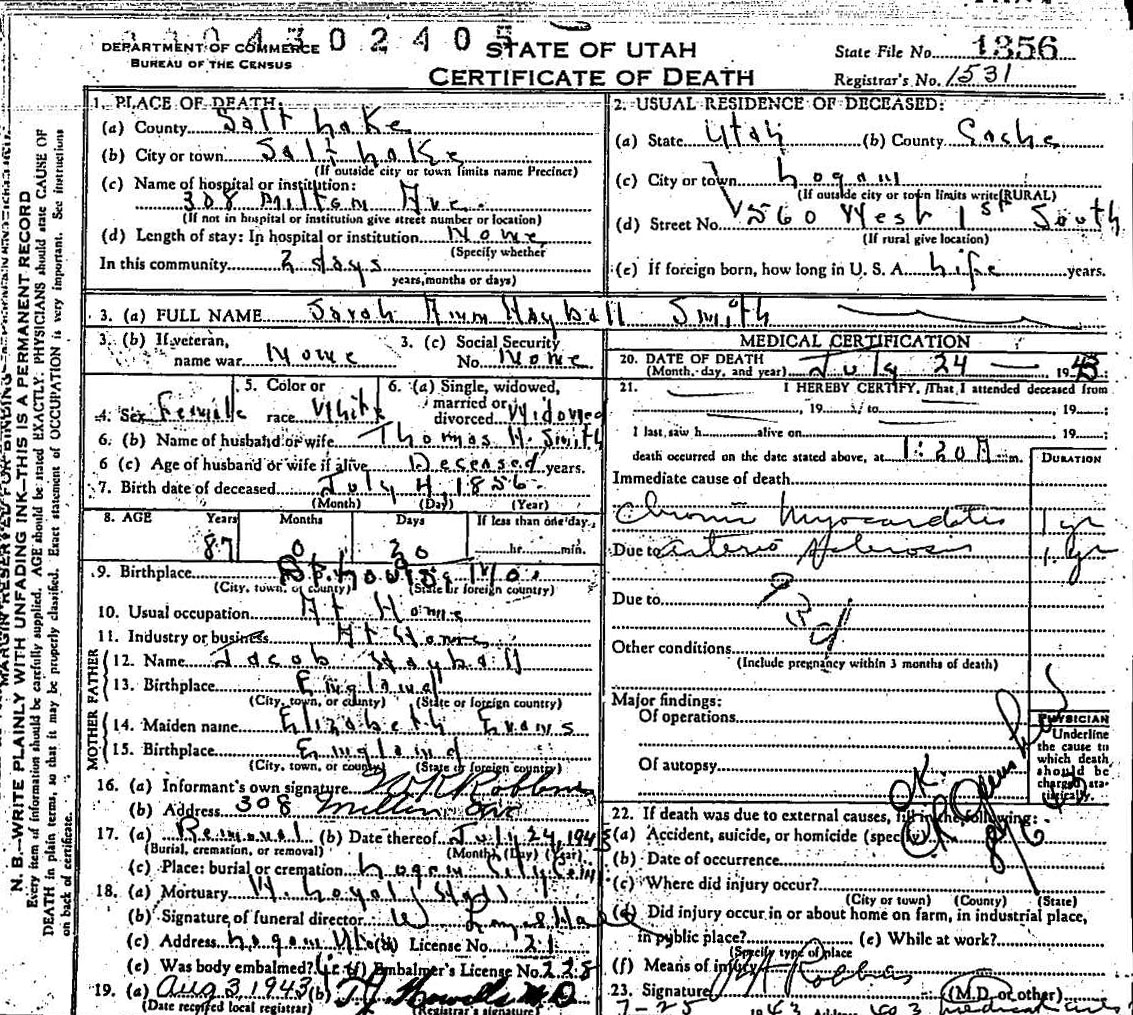 4 3 0 2 4 0 5
DEPARTMENT OF COMMERCE
BUREAU OF THE CENSUS
STATE OF UTAH
CERTIFICATE OF DEATH
State File No. 1356
Registrar's No. 1531
N. B.—WRITE PLAINLY WITH UNFADING INK—THIS IS A PERMANENT RECORD
Every item of information should be carefully supplied. AGE should be stated EXACTLY. PHYSICIANS should state CAUSE OF
DEATH in plain terms, so that it may be properly classified. Exact statement of OCCUPATION is very important. See instructions
on back of certificate.
1. PLACE OF DEATH:
(a) County Salt Lake
(b) City or town Salt Lake
(If outside city or town limits name Precinct)
(c) Name of hospital or institution:
308 Milton Ave.
(If not in hospital or institution give street number or location)
(d) Length of stay: In hospital or institution None
(Specify whether
In this community 2 days
years, months or days)
2. USUAL RESIDENCE OF DECEASED:
(a) State Utah (b) County Cache
(c) City or town Logan
(If outside city or town limits write RURAL)
(d) Street No. 560 West 1st South
(If rural give location)
(e) If foreign born, how long in U. S. A. Life years.
3. (a) FULL NAME Sarah Ann Hayball Smith
3. (b) If veteran, name war None 3. (c) Social Security No. None
4. Sex Female 5. Color or race White 6. (a) Single, widowed, married or divorced Widowed
6. (b) Name of husband or wife Thomas H. Smith
6 (c) Age of husband or wife if alive Deceased years.
7. Birth date of deceased July 4, 1856
(Month) (Day) (Year)
8. AGE Years Months Days If less than one day
87 0 20 hr. min.
9. Birthplace St. Louis, Mo.
(City, town, or county) (State or foreign country)
10. Usual occupation At Home
11. Industry or business At Home
FATHER
12. Name Jacob Hayball
13. Birthplace England
(City, town, or county) (State or foreign country)
MOTHER
14. Maiden name Elizabeth Evans
15. Birthplace England
(City, town, or county) (State or foreign country)
16. (a) Informant's own signature Robbins
(b) Address 308 Milton Ave
17. (a) Removal (b) Date thereof July 24, 1943
(Burial, cremation, or removal) (Month) (Day) (Year)
(c) Place: burial or cremation Logan City Cem
18. (a) Mortuary W. Loyal Hall
(b) Signature of funeral director W Loyal Hall
(c) Address Logan Utah (d) License No. 21
(e) Was body embalmed? Yes (f) Embalmer's License No. 228
19. (a) Aug 3, 1943 (b) Howells M.D.
(Date received local registrar) (Registrar's signature)
MEDICAL CERTIFICATION
20. DATE OF DEATH July 24 1943
(Month, day, and year)
21. I HEREBY CERTIFY, That I attended deceased from
, 19 to , 19 ;
I last saw h alive on , 19 ;
death occurred on the date stated above, at 1:20 A m.
DURATION
Immediate cause of death
Chronic Myocarditis 1 yr
Due to arterio sclerosis 1 yr
Due to
Other conditions
(Include pregnancy within 3 months of death)
Major findings:
Of operations
Of autopsy
PHYSICIAN
Underline
the cause to
which death
should be
charged sta-
tistically.
OK
22. If death was due to external causes, fill in the following:
(a) Accident, suicide, or homicide (specify)
(b) Date of occurrence
(c) Where did injury occur?
(City or town) (County) (State)
(d) Did injury occur in or about home on farm, in industrial place,
in public place? (e) While at work?
(Specify type of place
(f) Means of injury
23. Signature Robbins (M.D. or other)
7-25 1943 Address 403 Medical Arts